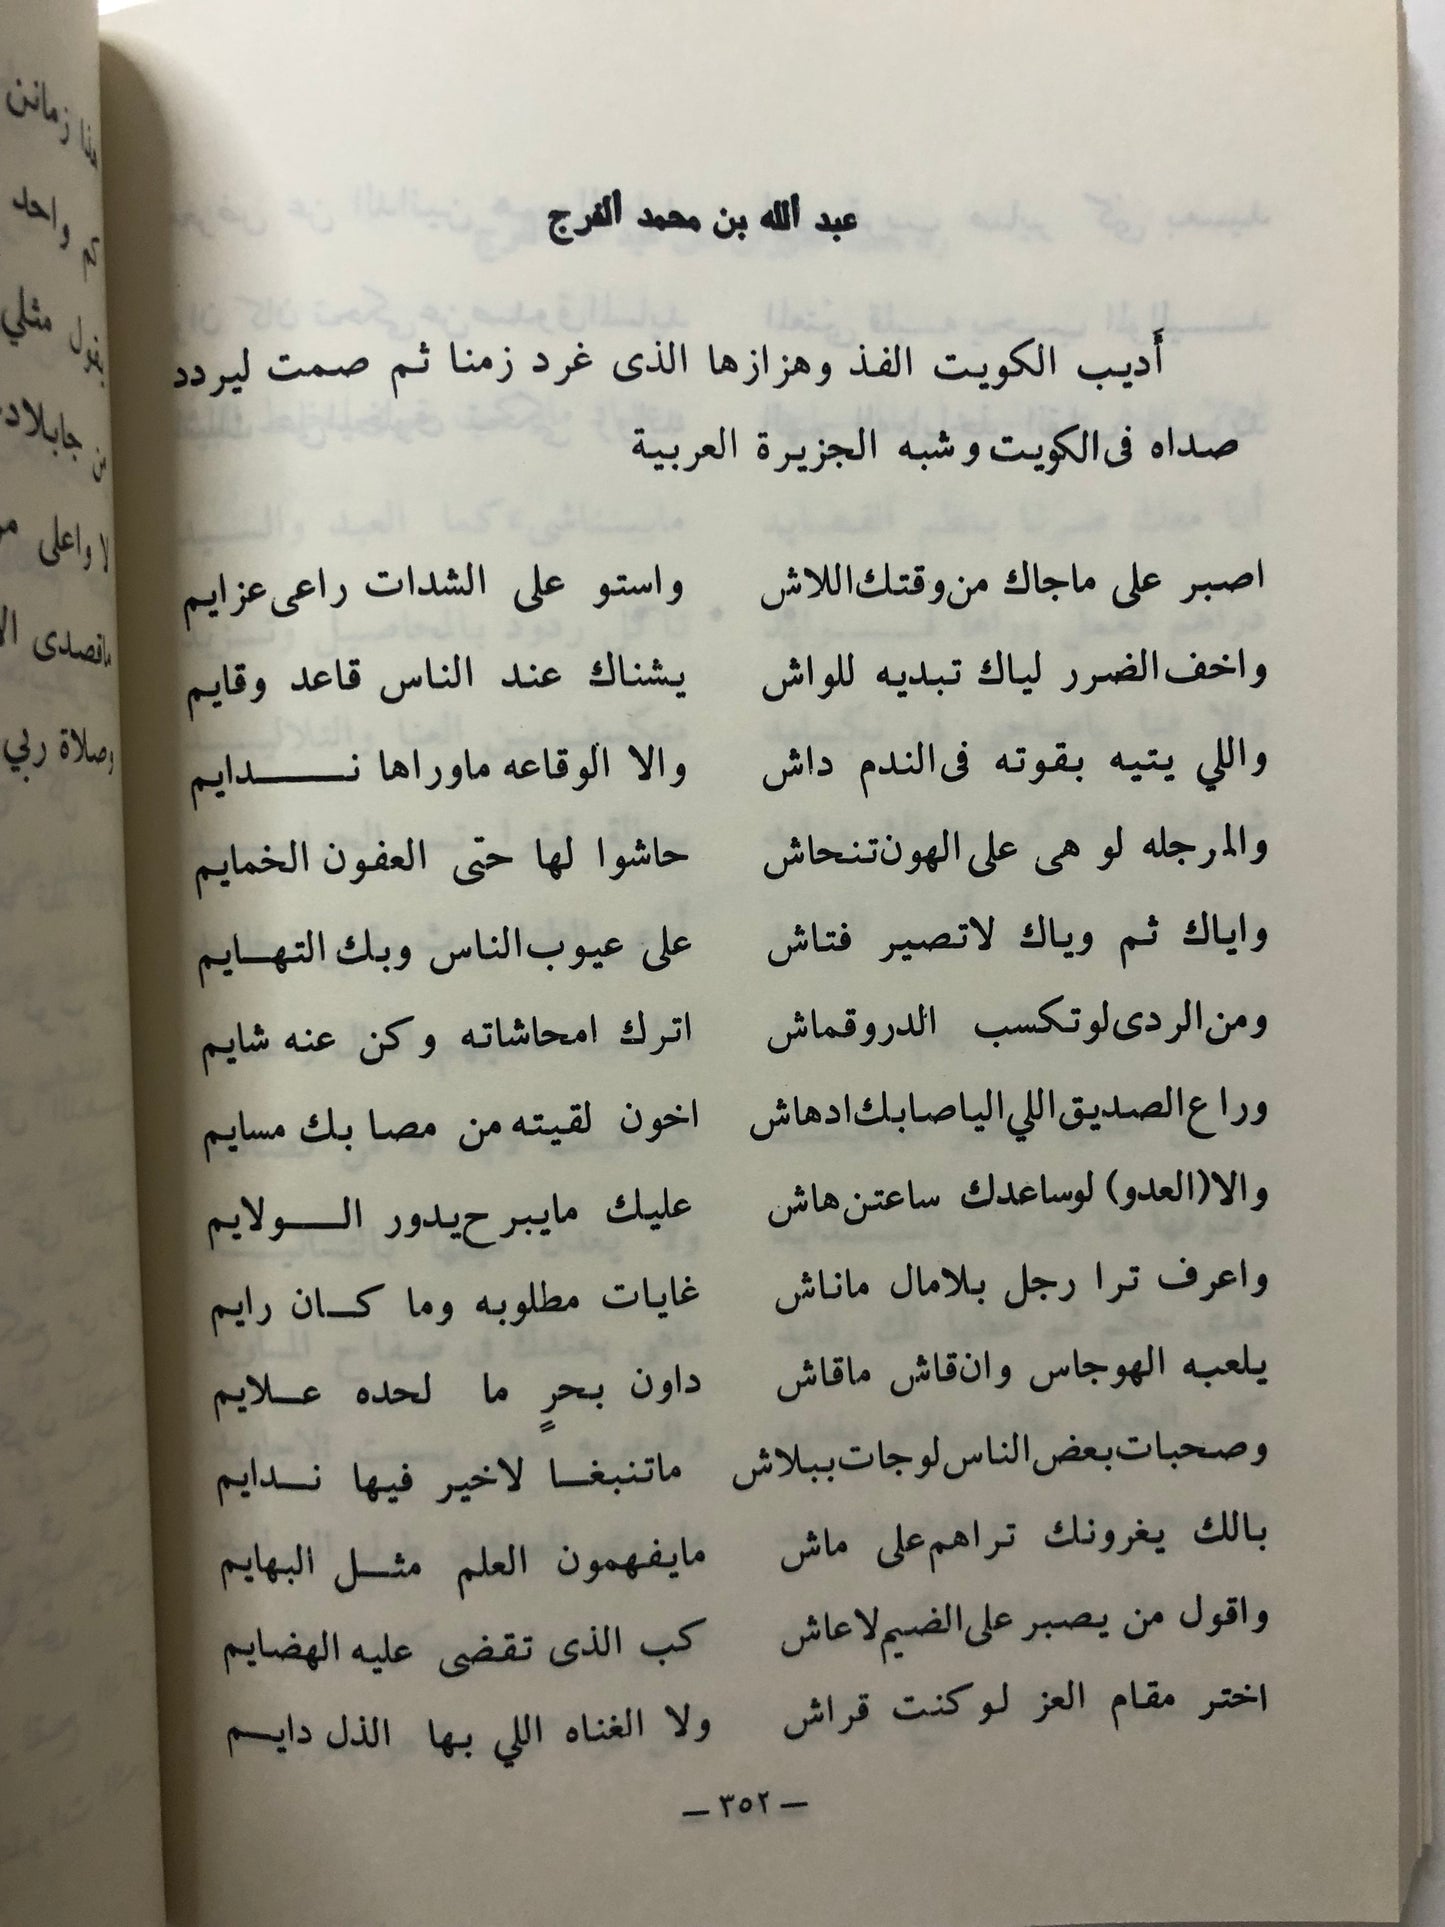 عبد الله بن محمد الفرج
أَديب الكويت الفذ وهزازها الذى غرد زمنا ثم صمت ليردد
صداه فى الكويت وشبه الجزيرة العربية
اصبر على ماجاك من وقتك اللاش واستو على الشدات راعى عزايم
واخف الضرر لياك تبديه للواش يشناك عند الناس قاعد وقايم
واللي يتيه بقوته فى الندم داش والا الوقاعه ماوراها نــــدايم
والمرجله لو هى على الهون تنحاش حاشوا لها حتى العفون الخمايم
واياك ثم وياك لاتصير فتاش على عيوب الناس وبك التهــايم
ومن الردى لوتكسب الدروقماش اترك امحاشاته وكن عنه شايم
وراع الصديق اللي الياصابك ادهاش اخون لقيته من مصابك مسايم
والا (العدو) لوساعدك ساعتن هاش عليك مايبرح يدور الــولايم
واعرف ترا رجل بلامال ماناش غايات مطلوبه وما كــان رايم
يلعبه الهوجاس وان قاش ماقاش داون بحرٍ ما لحده عــلايم
وصحبات بعض الناس لوجات ببلاش ماتنبغــا لاخير فيها نــدايم
بالك يغرونك تراهم على ماش مايفهمون العلم مثــل البهايم
واقول من يصبر على الضيم لاعاش كب الذى تقضى عليه الهضايم
اختر مقام العز لو كنت قراش ولا الغناه اللي بها الذل دايــم
— ٣٥٢ —
هذا زمانن
واحد
يقول مثلي
من جابلاد
لا واعلى
ماقصدى
وصلاة ربي